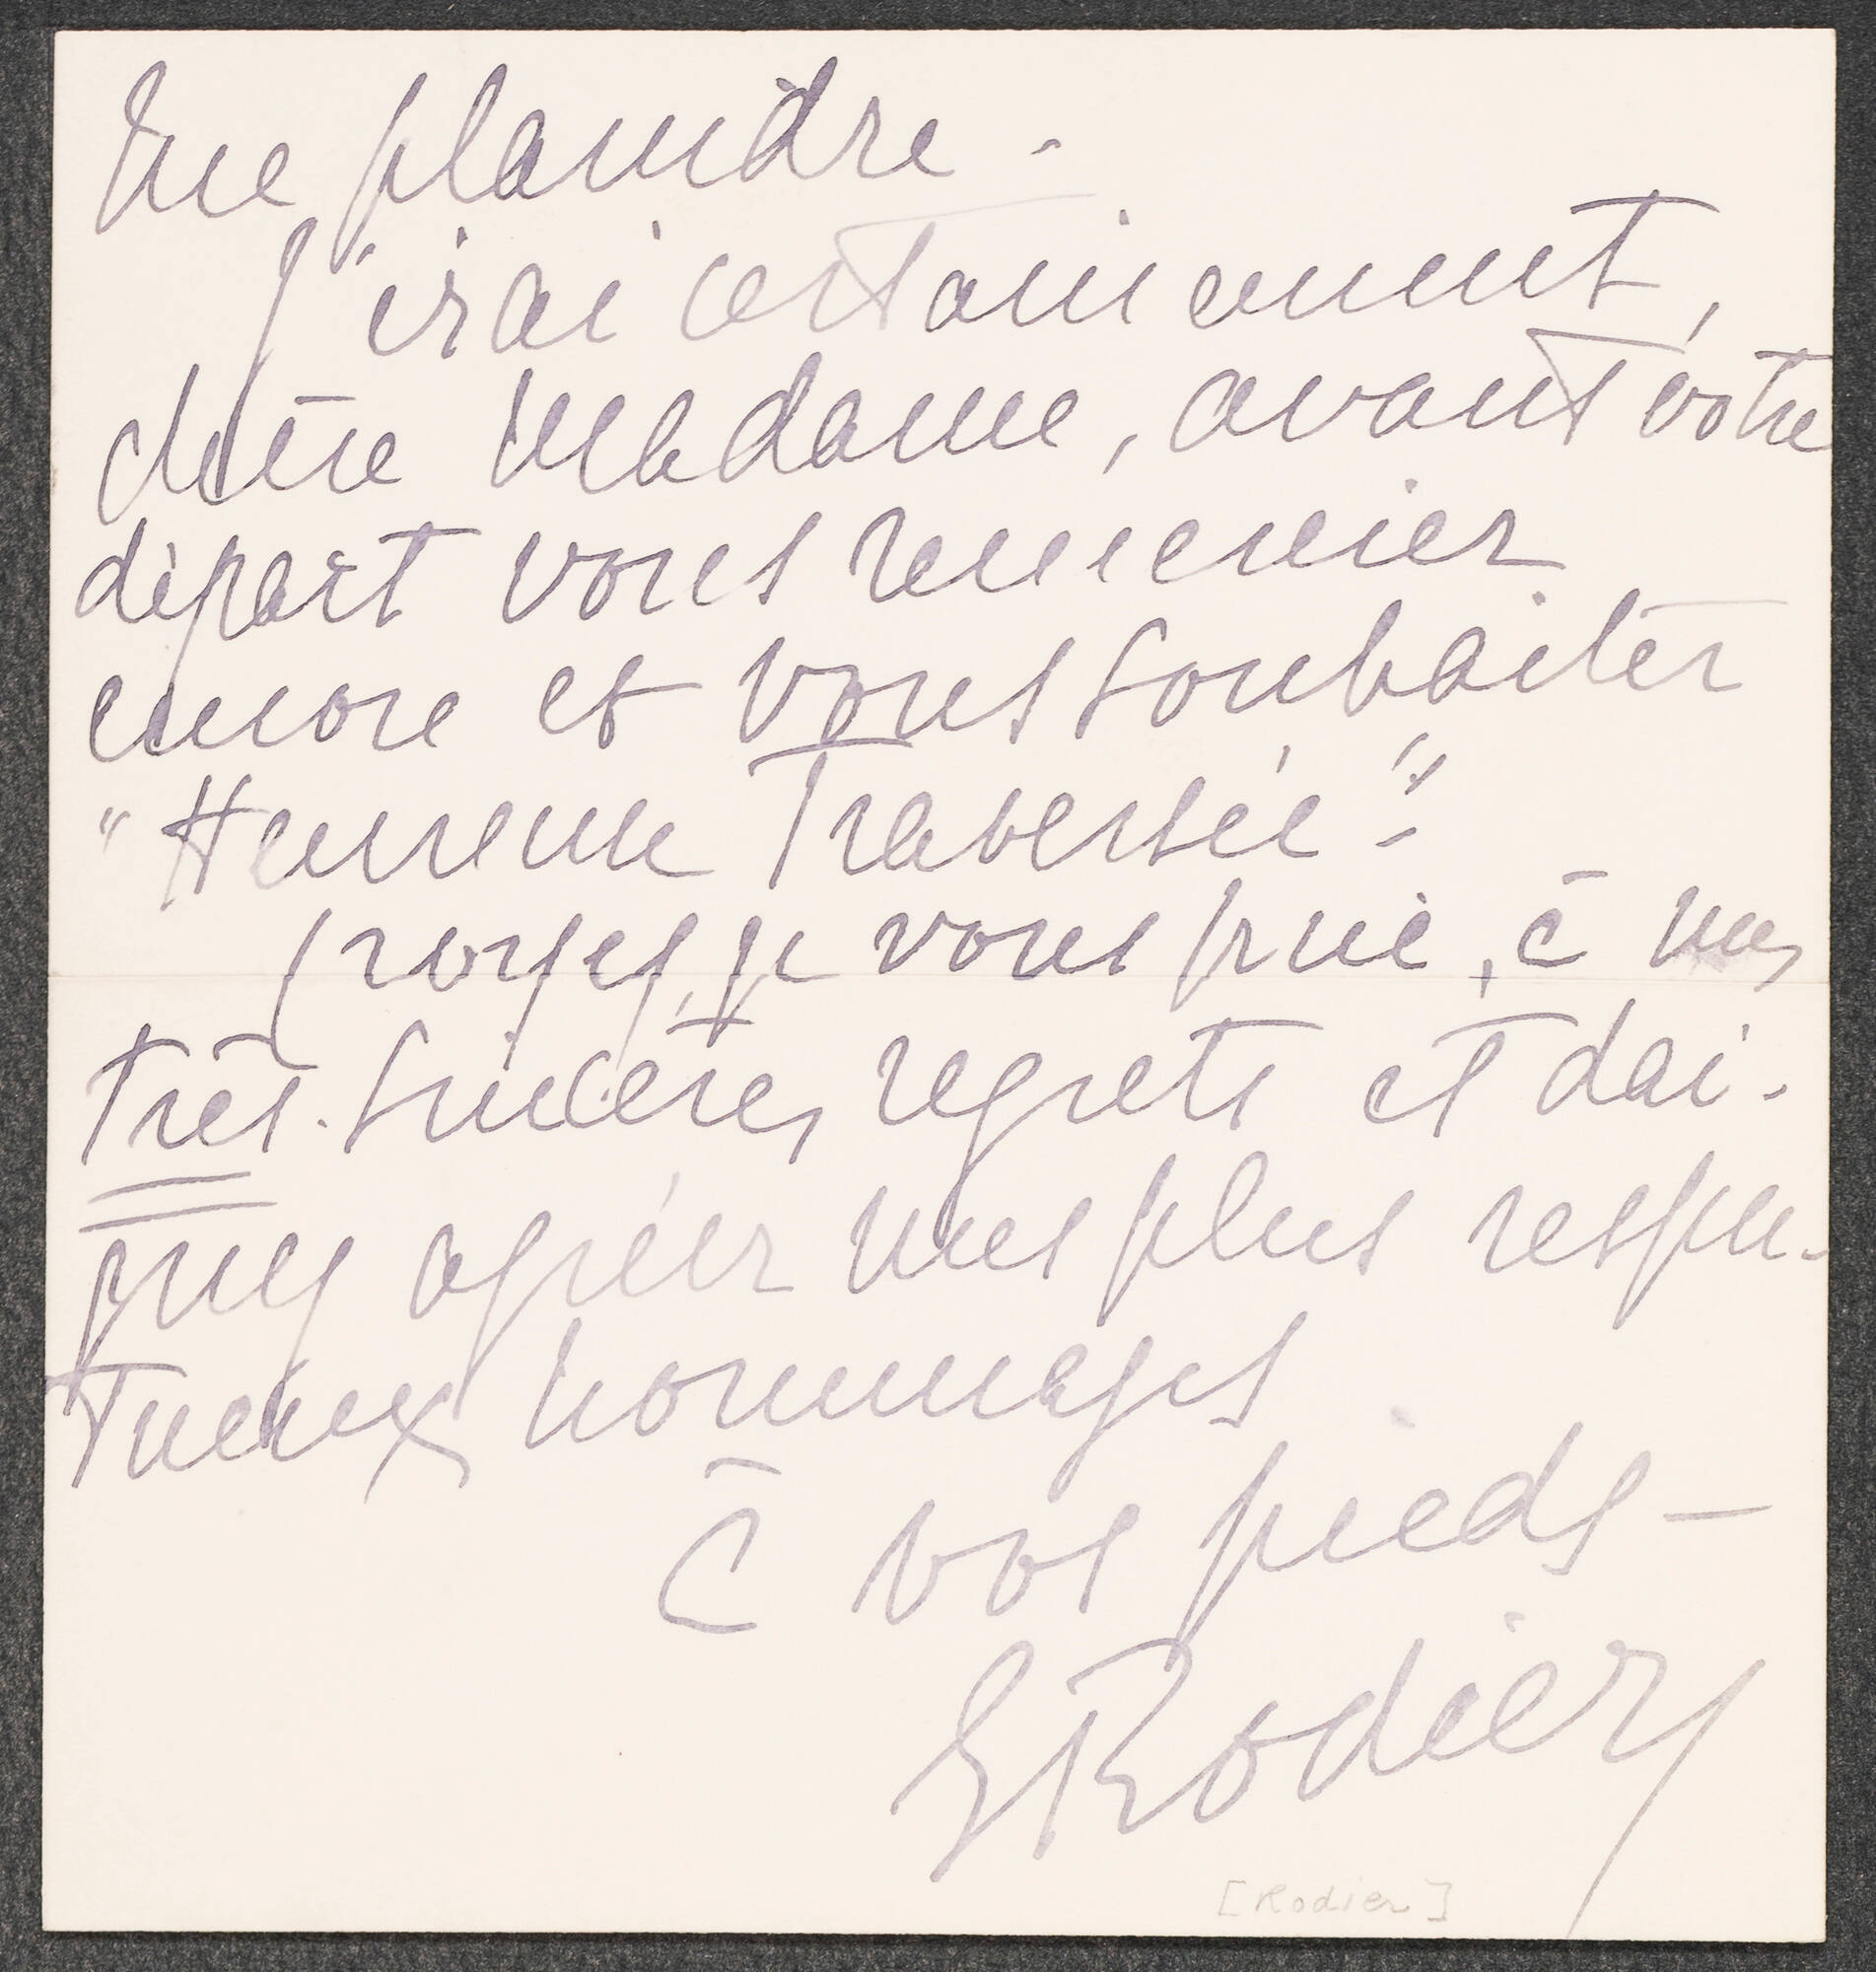 me plaindre -
J'irai certainement,
chère Madame, avant votre
départ vous remercier
encore et vous souhaiter
"Heureuse Traversée" -
Croyez, je vous prie, à mes
très-sincères regrets et dai-
gnez agréer mes plus respec-
tueux hommages
à vos pieds -
E Rodier
[Rodier]